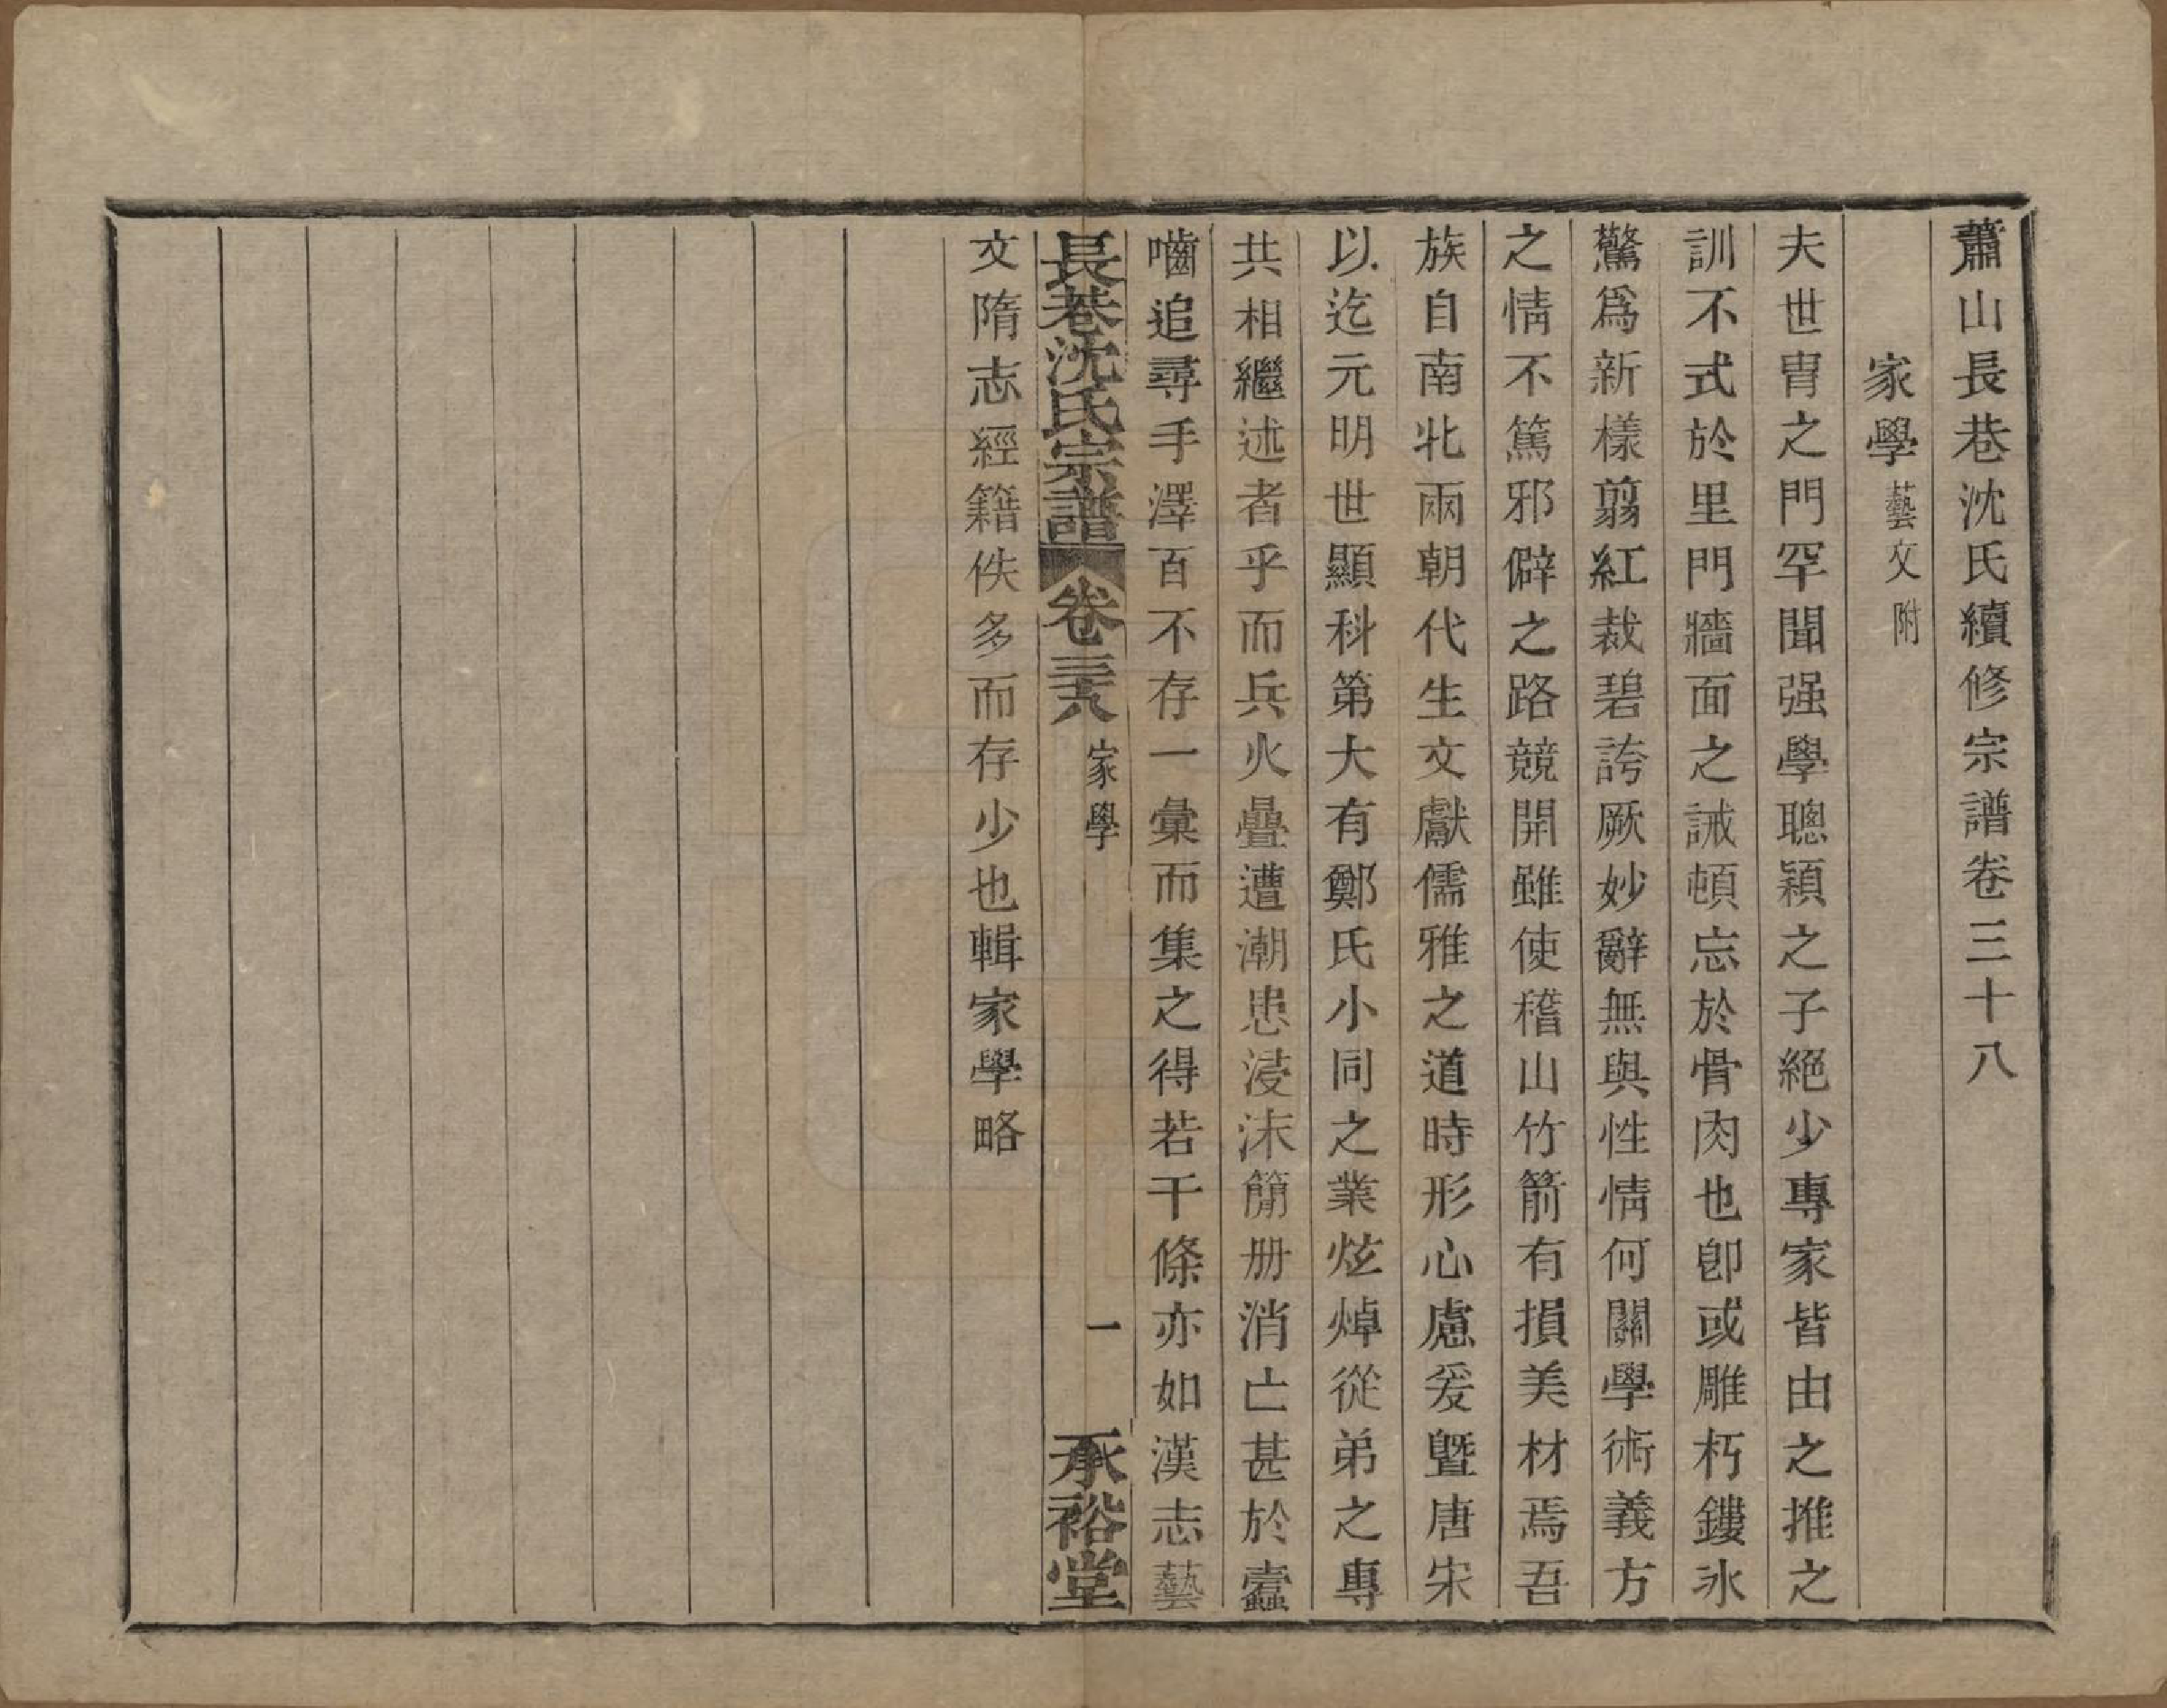 蕭山長巷沈氏續修宗譜卷三十八
家學藝文附
夫世胄之門罕聞强學聰穎之子絕少專家皆由之推之
訓不式於里門牆面之誡頓忘於骨肉也卽或雕朽鏤冰
驚爲新樣翦紅裁碧誇厥妙辭無與性情何關學術義方
之情不篤邪僻之路競開雖使稽山竹箭有損美材焉吾
族自南北兩朝代生文獻儒雅之道時形心慮爰曁唐宋
以迄元明世顯科第大有鄭氏小同之業炫焯從弟之專
共相繼述者乎而兵火疊遭潮患浸沫簡册消亡甚於蠹
嚙追尋手澤百不存一彙而集之得若干條亦如漢志藝
長巷沈氏宗譜 卷三十八 家學 一 承裕堂
文隋志經籍佚多而存少也輯家學略